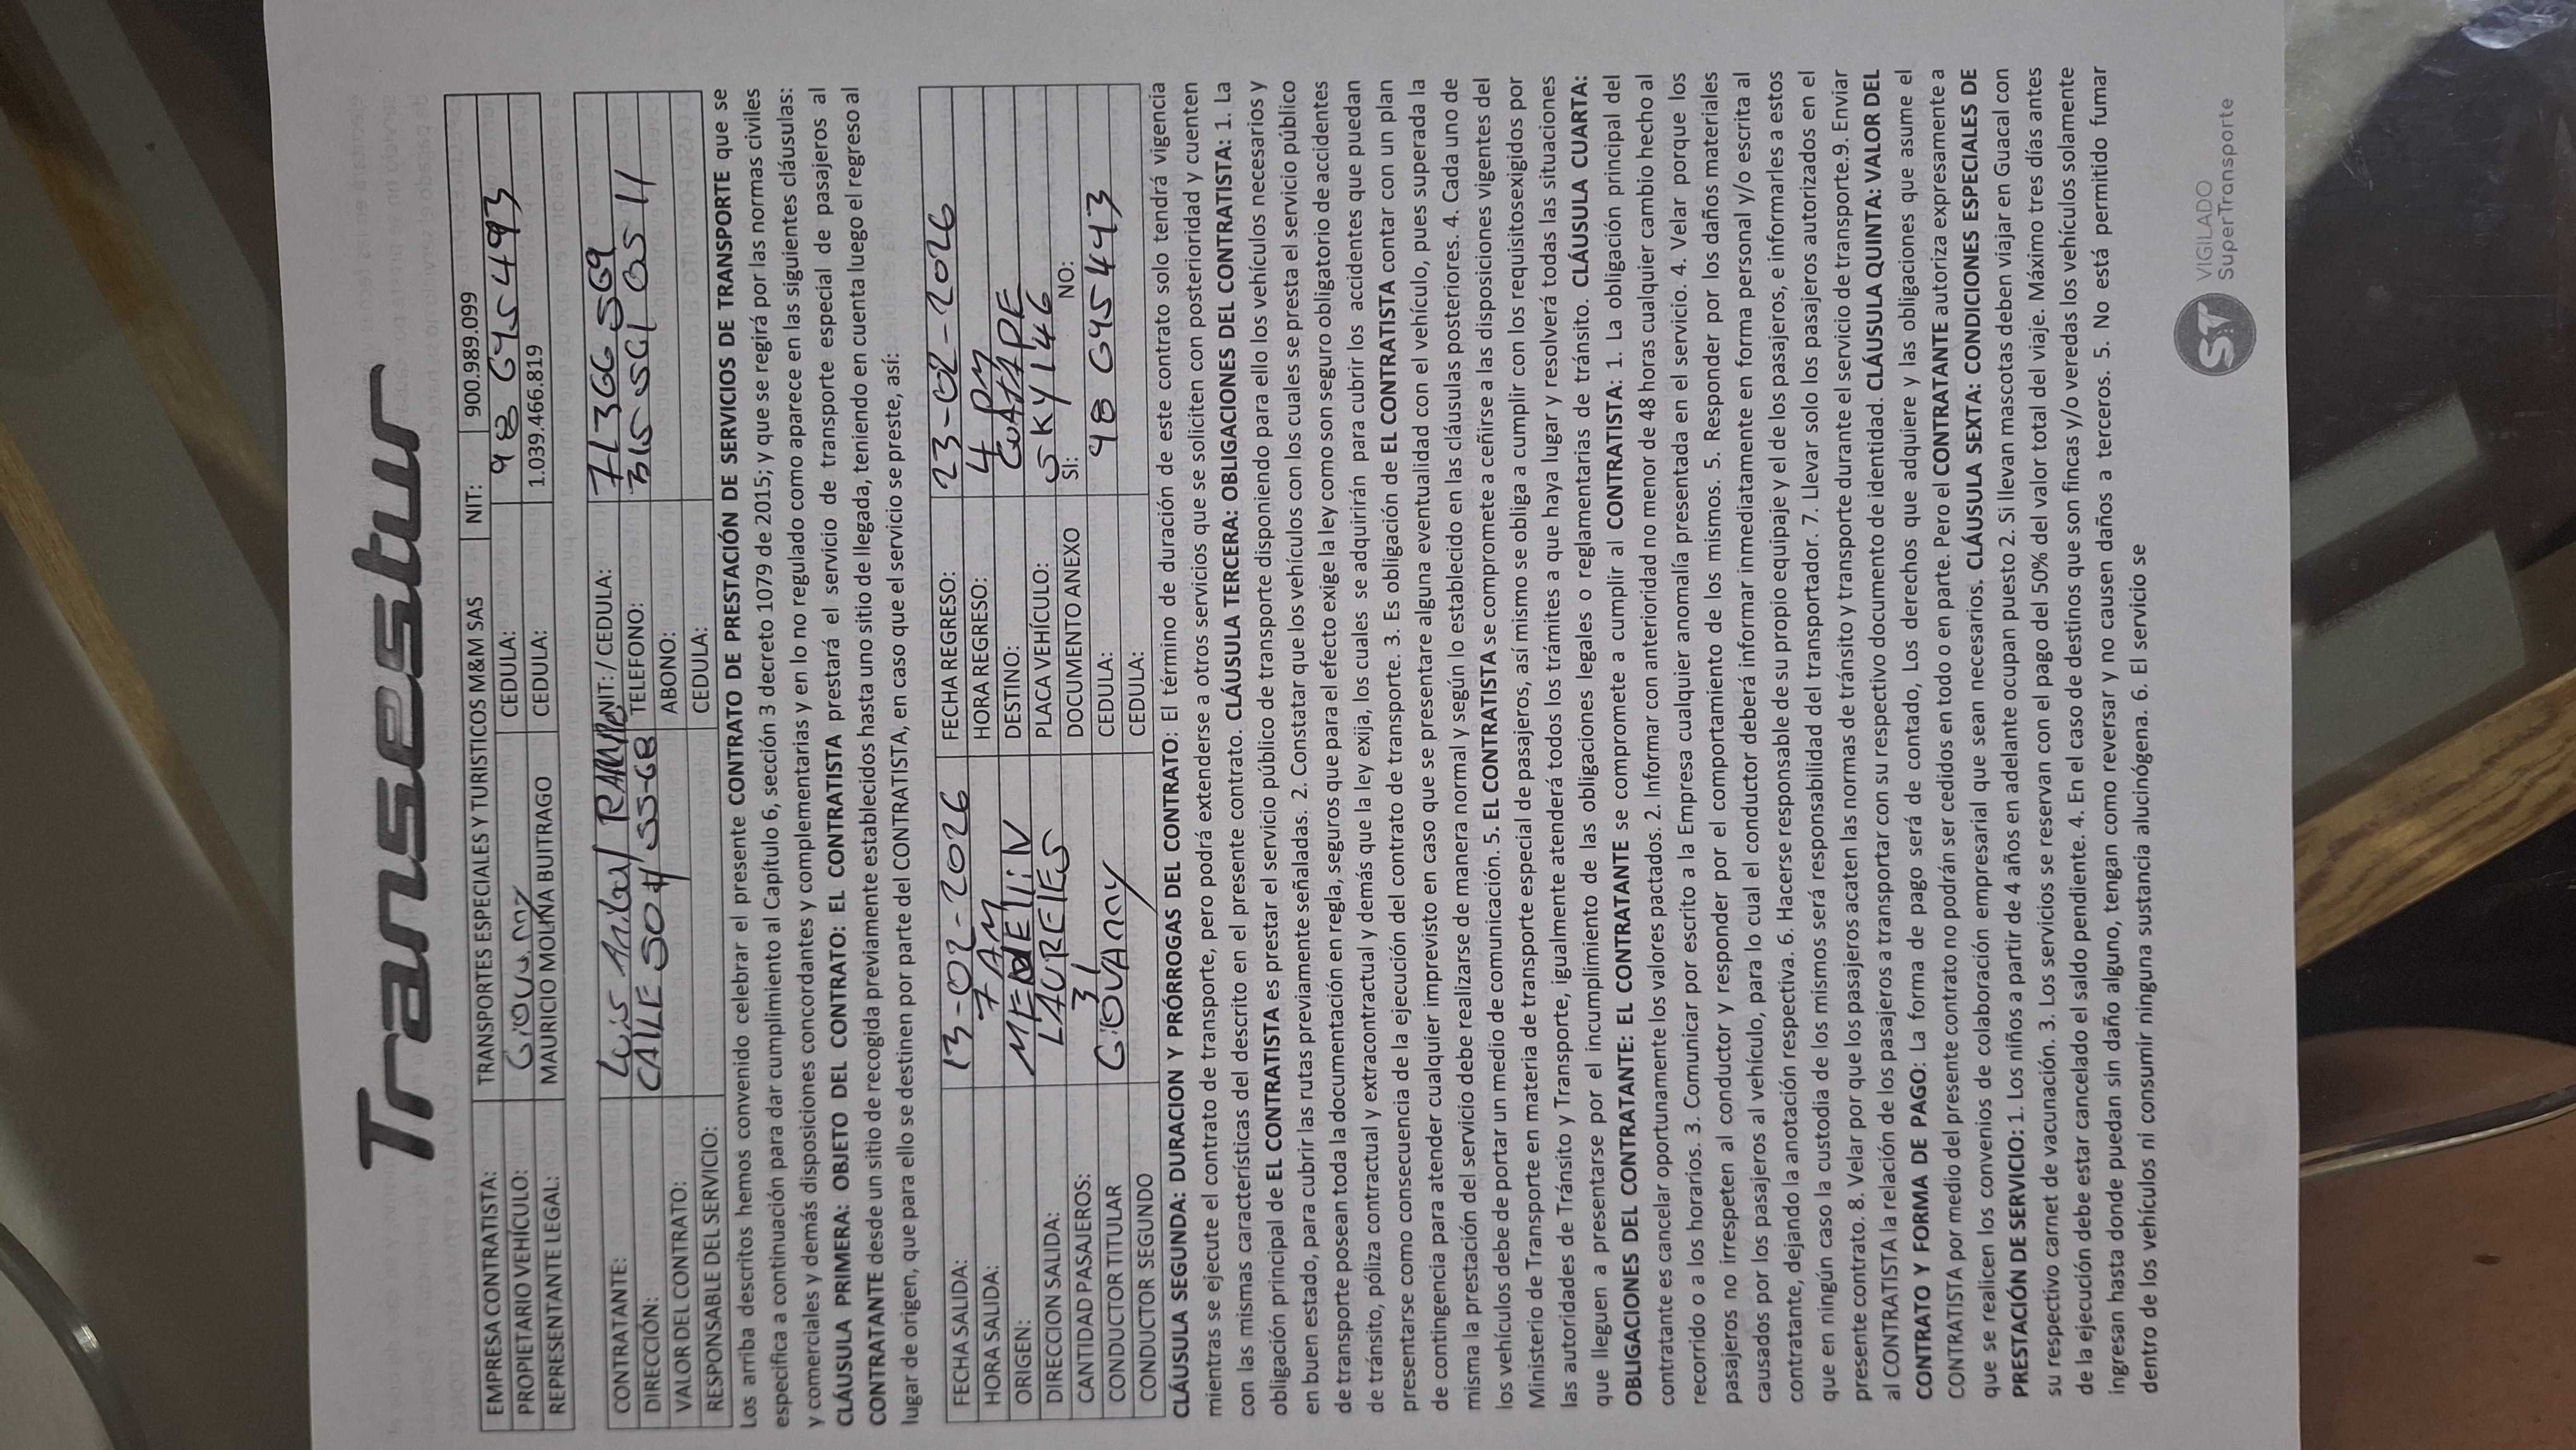 Transestur
EMPRESA CONTRATISTA: TRANSPORTES ESPECIALES Y TURISTICOS M&M SAS NIT: 900.989.099
PROPIETARIO VEHÍCULO: Giovanny CEDULA: 98 645 493
REPRESENTANTE LEGAL: MAURICIO MOLINA BUITRAGO CEDULA: 1.039.466.819
CONTRATANTE: Luis Anibal NIT: / CEDULA: 71366569
DIRECCIÓN: CALLE 50 # 55-68 TELEFONO: 315 561 05 11
VALOR DEL CONTRATO: ABONO:
RESPONSABLE DEL SERVICIO: CEDULA:
Los arriba descritos hemos convenido celebrar el presente CONTRATO DE PRESTACIÓN DE SERVICIOS DE TRANSPORTE que se
especifica a continuación para dar cumplimiento al Capítulo 6, sección 3 decreto 1079 de 2015; y que se regirá por las normas civiles
y comerciales y demás disposiciones concordantes y complementarias y en lo no regulado como aparece en las siguientes cláusulas:
CLÁUSULA PRIMERA: OBJETO DEL CONTRATO: EL CONTRATISTA prestará el servicio de transporte especial de pasajeros al
CONTRATANTE desde un sitio de recogida previamente establecidos hasta uno sitio de llegada, teniendo en cuenta luego el regreso al
lugar de origen, que para ello se destinen por parte del CONTRATISTA, en caso que el servicio se preste, así:
FECHA SALIDA: 13-02-2026 FECHA REGRESO: 23-02-2026
HORA SALIDA: 7 AM HORA REGRESO: 4 PM
ORIGEN: MEDELLIN DESTINO: GUATAPE
DIRECCION SALIDA: LAURELES PLACA VEHÍCULO: SKY146
CANTIDAD PASAJEROS: 31 DOCUMENTO ANEXO SI: NO:
CONDUCTOR TITULAR GiOVAnny CEDULA: 98 645 493
CONDUCTOR SEGUNDO CEDULA:
CLÁUSULA SEGUNDA: DURACION Y PRÓRROGAS DEL CONTRATO: El término de duración de este contrato solo tendrá vigencia
mientras se ejecute el contrato de transporte, pero podrá extenderse a otros servicios que se soliciten con posterioridad y cuenten
con las mismas características del descrito en el presente contrato. CLÁUSULA TERCERA: OBLIGACIONES DEL CONTRATISTA: 1. La
obligación principal de EL CONTRATISTA es prestar el servicio público de transporte disponiendo para ello los vehículos necesarios y
en buen estado, para cubrir las rutas previamente señaladas. 2. Constatar que los vehículos con los cuales se presta el servicio público
de transporte posean toda la documentación en regla, seguros que para el efecto exige la ley como son seguro obligatorio de accidentes
de tránsito, póliza contractual y extracontractual y demás que la ley exija, los cuales se adquirirán para cubrir los accidentes que puedan
presentarse como consecuencia de la ejecución del contrato de transporte. 3. Es obligación de EL CONTRATISTA contar con un plan
de contingencia para atender cualquier imprevisto en caso que se presentare alguna eventualidad con el vehículo, pues superada la
misma la prestación del servicio debe realizarse de manera normal y según lo establecido en las cláusulas posteriores. 4. Cada uno de
los vehículos debe de portar un medio de comunicación. 5. EL CONTRATISTA se compromete a ceñirse a las disposiciones vigentes del
Ministerio de Transporte en materia de transporte especial de pasajeros, así mismo se obliga a cumplir con los requisitosexigidos por
las autoridades de Tránsito y Transporte, igualmente atenderá todos los trámites a que haya lugar y resolverá todas las situaciones
que lleguen a presentarse por el incumplimiento de las obligaciones legales o reglamentarias de tránsito. CLÁUSULA CUARTA:
OBLIGACIONES DEL CONTRATANTE: EL CONTRATANTE se compromete a cumplir al CONTRATISTA: 1. La obligación principal del
contratante es cancelar oportunamente los valores pactados. 2. Informar con anterioridad no menor de 48 horas cualquier cambio hecho al
recorrido o a los horarios. 3. Comunicar por escrito a la Empresa cualquier anomalía presentada en el servicio. 4. Velar porque los
pasajeros no irrespeten al conductor y responder por el comportamiento de los mismos. 5. Responder por los daños materiales
causados por los pasajeros al vehículo, para lo cual el conductor deberá informar inmediatamente en forma personal y/o escrita al
contratante, dejando la anotación respectiva. 6. Hacerse responsable de su propio equipaje y el de los pasajeros, e informarles a estos
que en ningún caso la custodia de los mismos será responsabilidad del transportador. 7. Llevar solo los pasajeros autorizados en el
presente contrato. 8. Velar por que los pasajeros acaten las normas de tránsito y transporte durante el servicio de transporte.9. Enviar
al CONTRATISTA la relación de los pasajeros a transportar con su respectivo documento de identidad. CLÁUSULA QUINTA: VALOR DEL
CONTRATO Y FORMA DE PAGO: La forma de pago será de contado, Los derechos que adquiere y las obligaciones que asume el
CONTRATISTA por medio del presente contrato no podrán ser cedidos en todo o en parte. Pero el CONTRATANTE autoriza expresamente a
que se realicen los convenios de colaboración empresarial que sean necesarios. CLÁUSULA SEXTA: CONDICIONES ESPECIALES DE
PRESTACIÓN DE SERVICIO: 1. Los niños a partir de 4 años en adelante ocupan puesto 2. Si llevan mascotas deben viajar en Guacal con
su respectivo carnet de vacunación. 3. Los servicios se reservan con el pago del 50% del valor total del viaje. Máximo tres días antes
de la ejecución debe estar cancelado el saldo pendiente. 4. En el caso de destinos que son fincas y/o veredas los vehículos solamente
ingresan hasta donde puedan sin daño alguno, tengan como reversar y no causen daños a terceros. 5. No está permitido fumar
dentro de los vehículos ni consumir ninguna sustancia alucinógena. 6. El servicio se
ST
VIGILADO
SuperTransporte